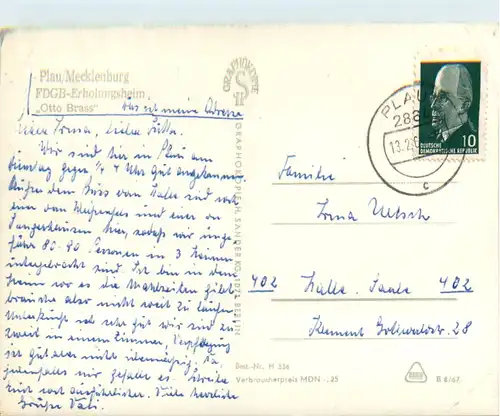 Plau/Mecklenburg
FDGB-Erholungsheim
„Otto Brass"
das ist meine Adresse
Liebe Irma, liebe Jutta.
Wir sind hier in Plau am
Dienstag gegen ¾ 4 Uhr gut angekommen
Außer dem Bus von Halle sind noch
ein von Weißenfels und einer von
Sangerhausen hier, sodaß wir unge-
fähr 80-90 Personen in 3 Heimen
untergebracht sind. Ich bin in dem
Heim wo es die Mahlzeiten gibt
brauche also nicht weit zu laufen
Unterkunft ist sehr gut wir sind zu
zweit in einem Zimmer, Verpflegung
ist gut aber nicht übermäßig.
mir gefällt es. Schreibe
noch ausführlicher. Viele herzliche
Grüße Vati.
GRAPHOKOPIE
GRAPHOKOPIE H. SANDER KG, 1002 BERLIN
PLAU
286
13.2.
c
DEUTSCHE
DEMOKRATISCHE REPUBLIK
10
Familie
Irma Uetsch
402 Halle-Saale 402
Klement Gottwaldstr. 28
Best.-Nr. H 536
Verbraucherpreis MDN -,25
R 8/67